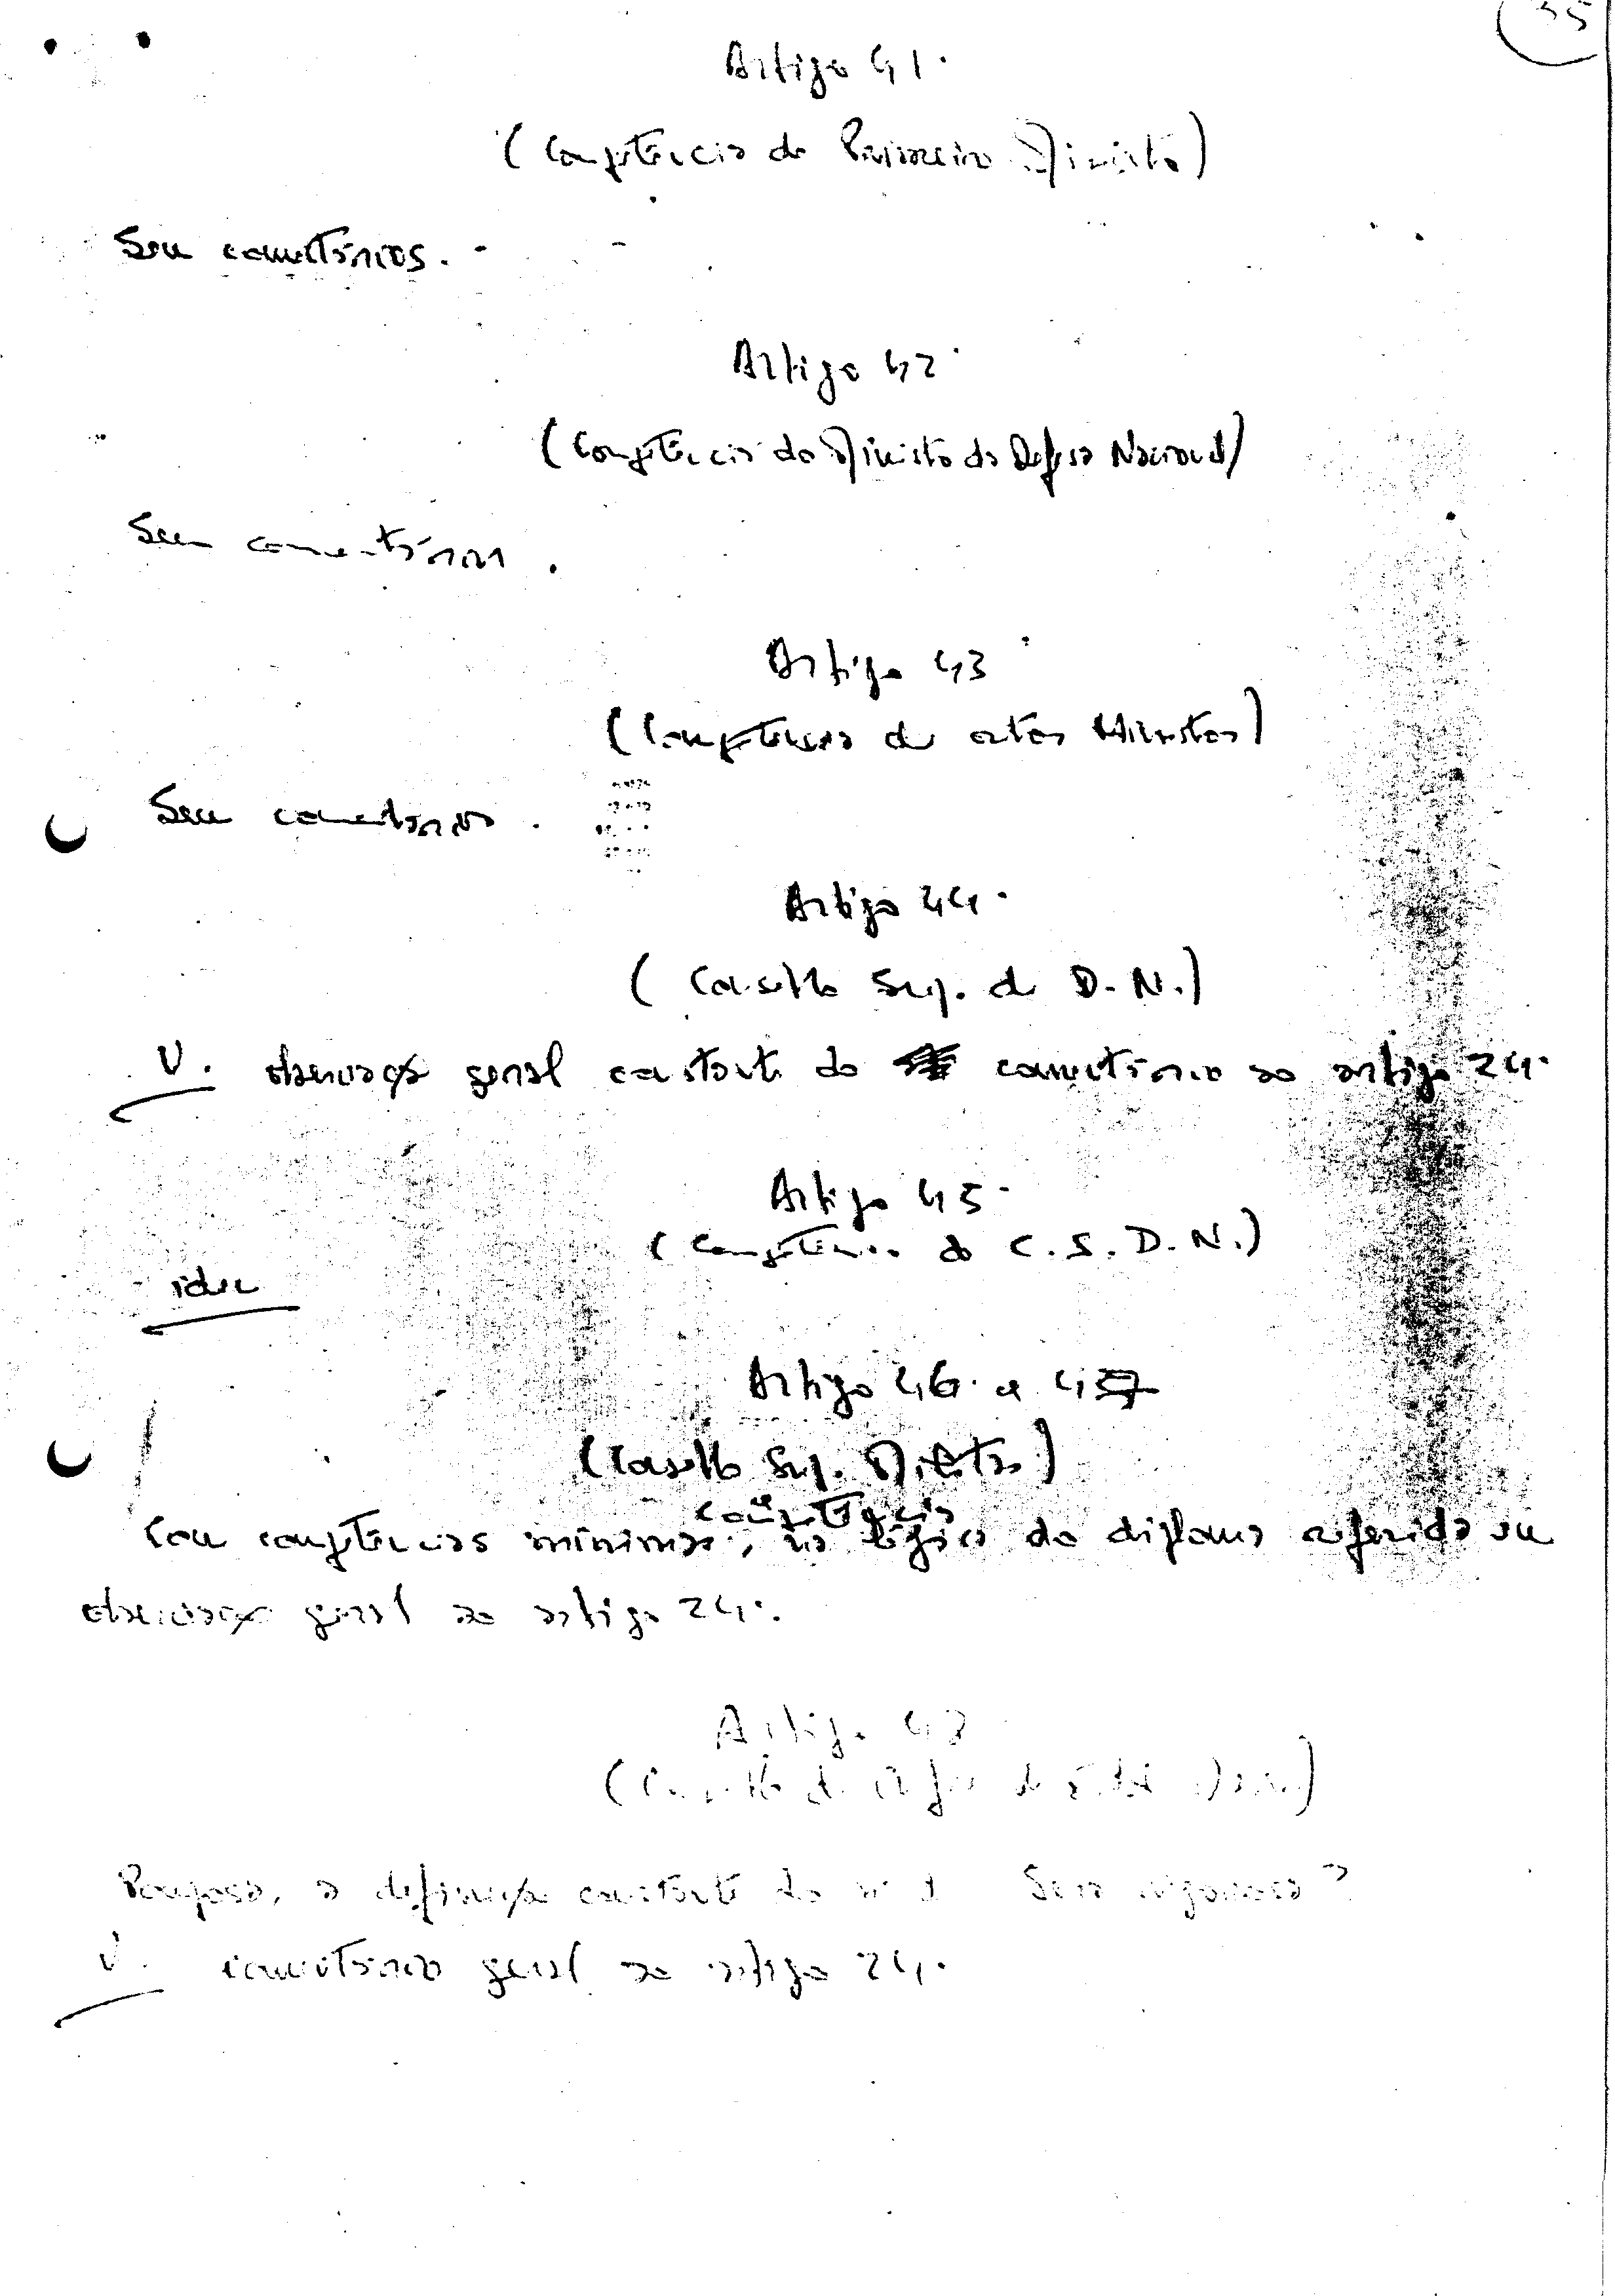 35
Artigo 41.
(Competência do Primeiro Ministro)
Sem comentários.
Artigo 42.
(Competência do Ministro da Defesa Nacional)
Sem comentários.
Artigo 43.
(Competência de outros Ministros)
Sem comentários.
Artigo 44.
(Conselho Sup. de D. N.)
V. observação geral constante do comentário ao artigo 24.
Artigo 45.
(Competência do C. S. D. N.)
idem
Artigo 46. e 47
(Conselho Sup. Militar)
Competência
Com competências mínimas, na lógica do diploma referido em
observação geral ao artigo 24.
Artigo
(Conselho de Chefes de Estado Maior)
a definição constante do nº 1 Será rigorosa?
V. comentário geral ao artigo 24.